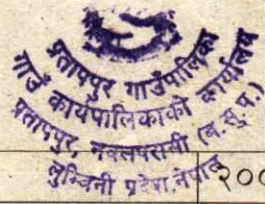 प्रतापपुर गाउँपालिका
गाउँ कार्यपालिकाको कार्यालय
प्रतापपुर, नवलपरासी (ब.सु.प.)
लुम्विनी प्रदेश, नेपाल
२००